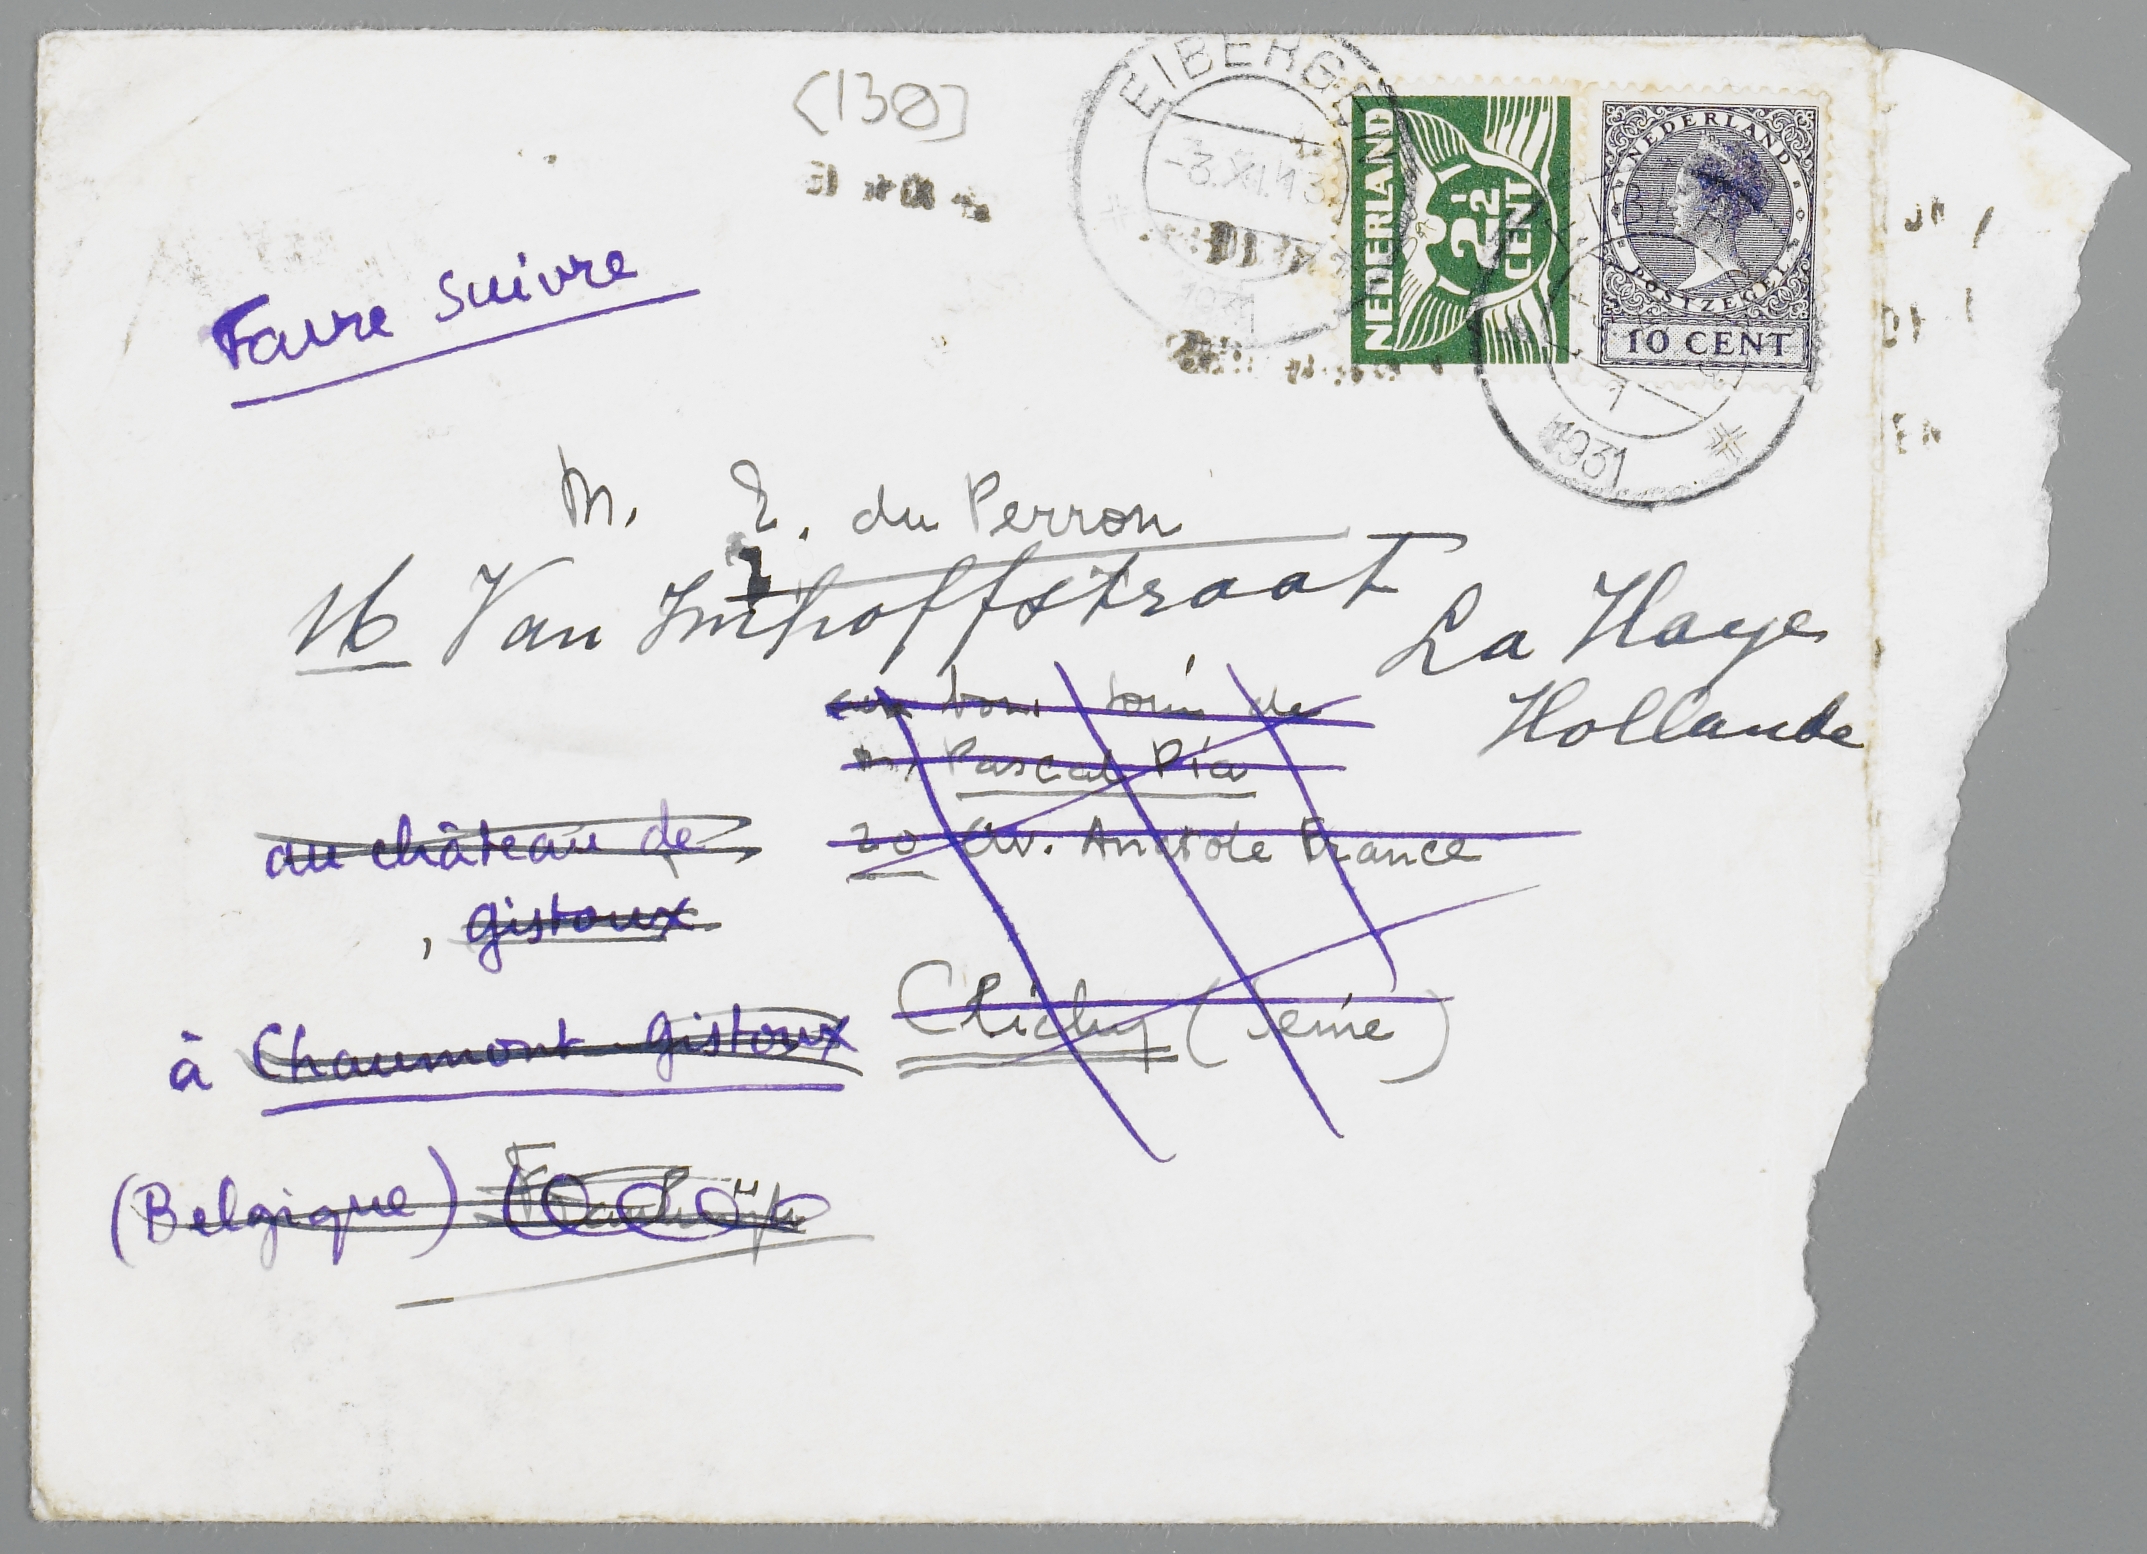 [138]
EIBERGEN
1931
NEDERLAND
2½ CENT
NEDERLAND
POSTZEGEL
10 CENT
1
1931
Faire suivre
M. E. du Perron
16 Van Imhoffstraat
La Haye
Hollande
aux bons soins de
M. Pascal Pia
20 av. Anatole France
Clichy (Seine)
au château de
Gistoux
à Chaumont-Gistoux
(Belgique)